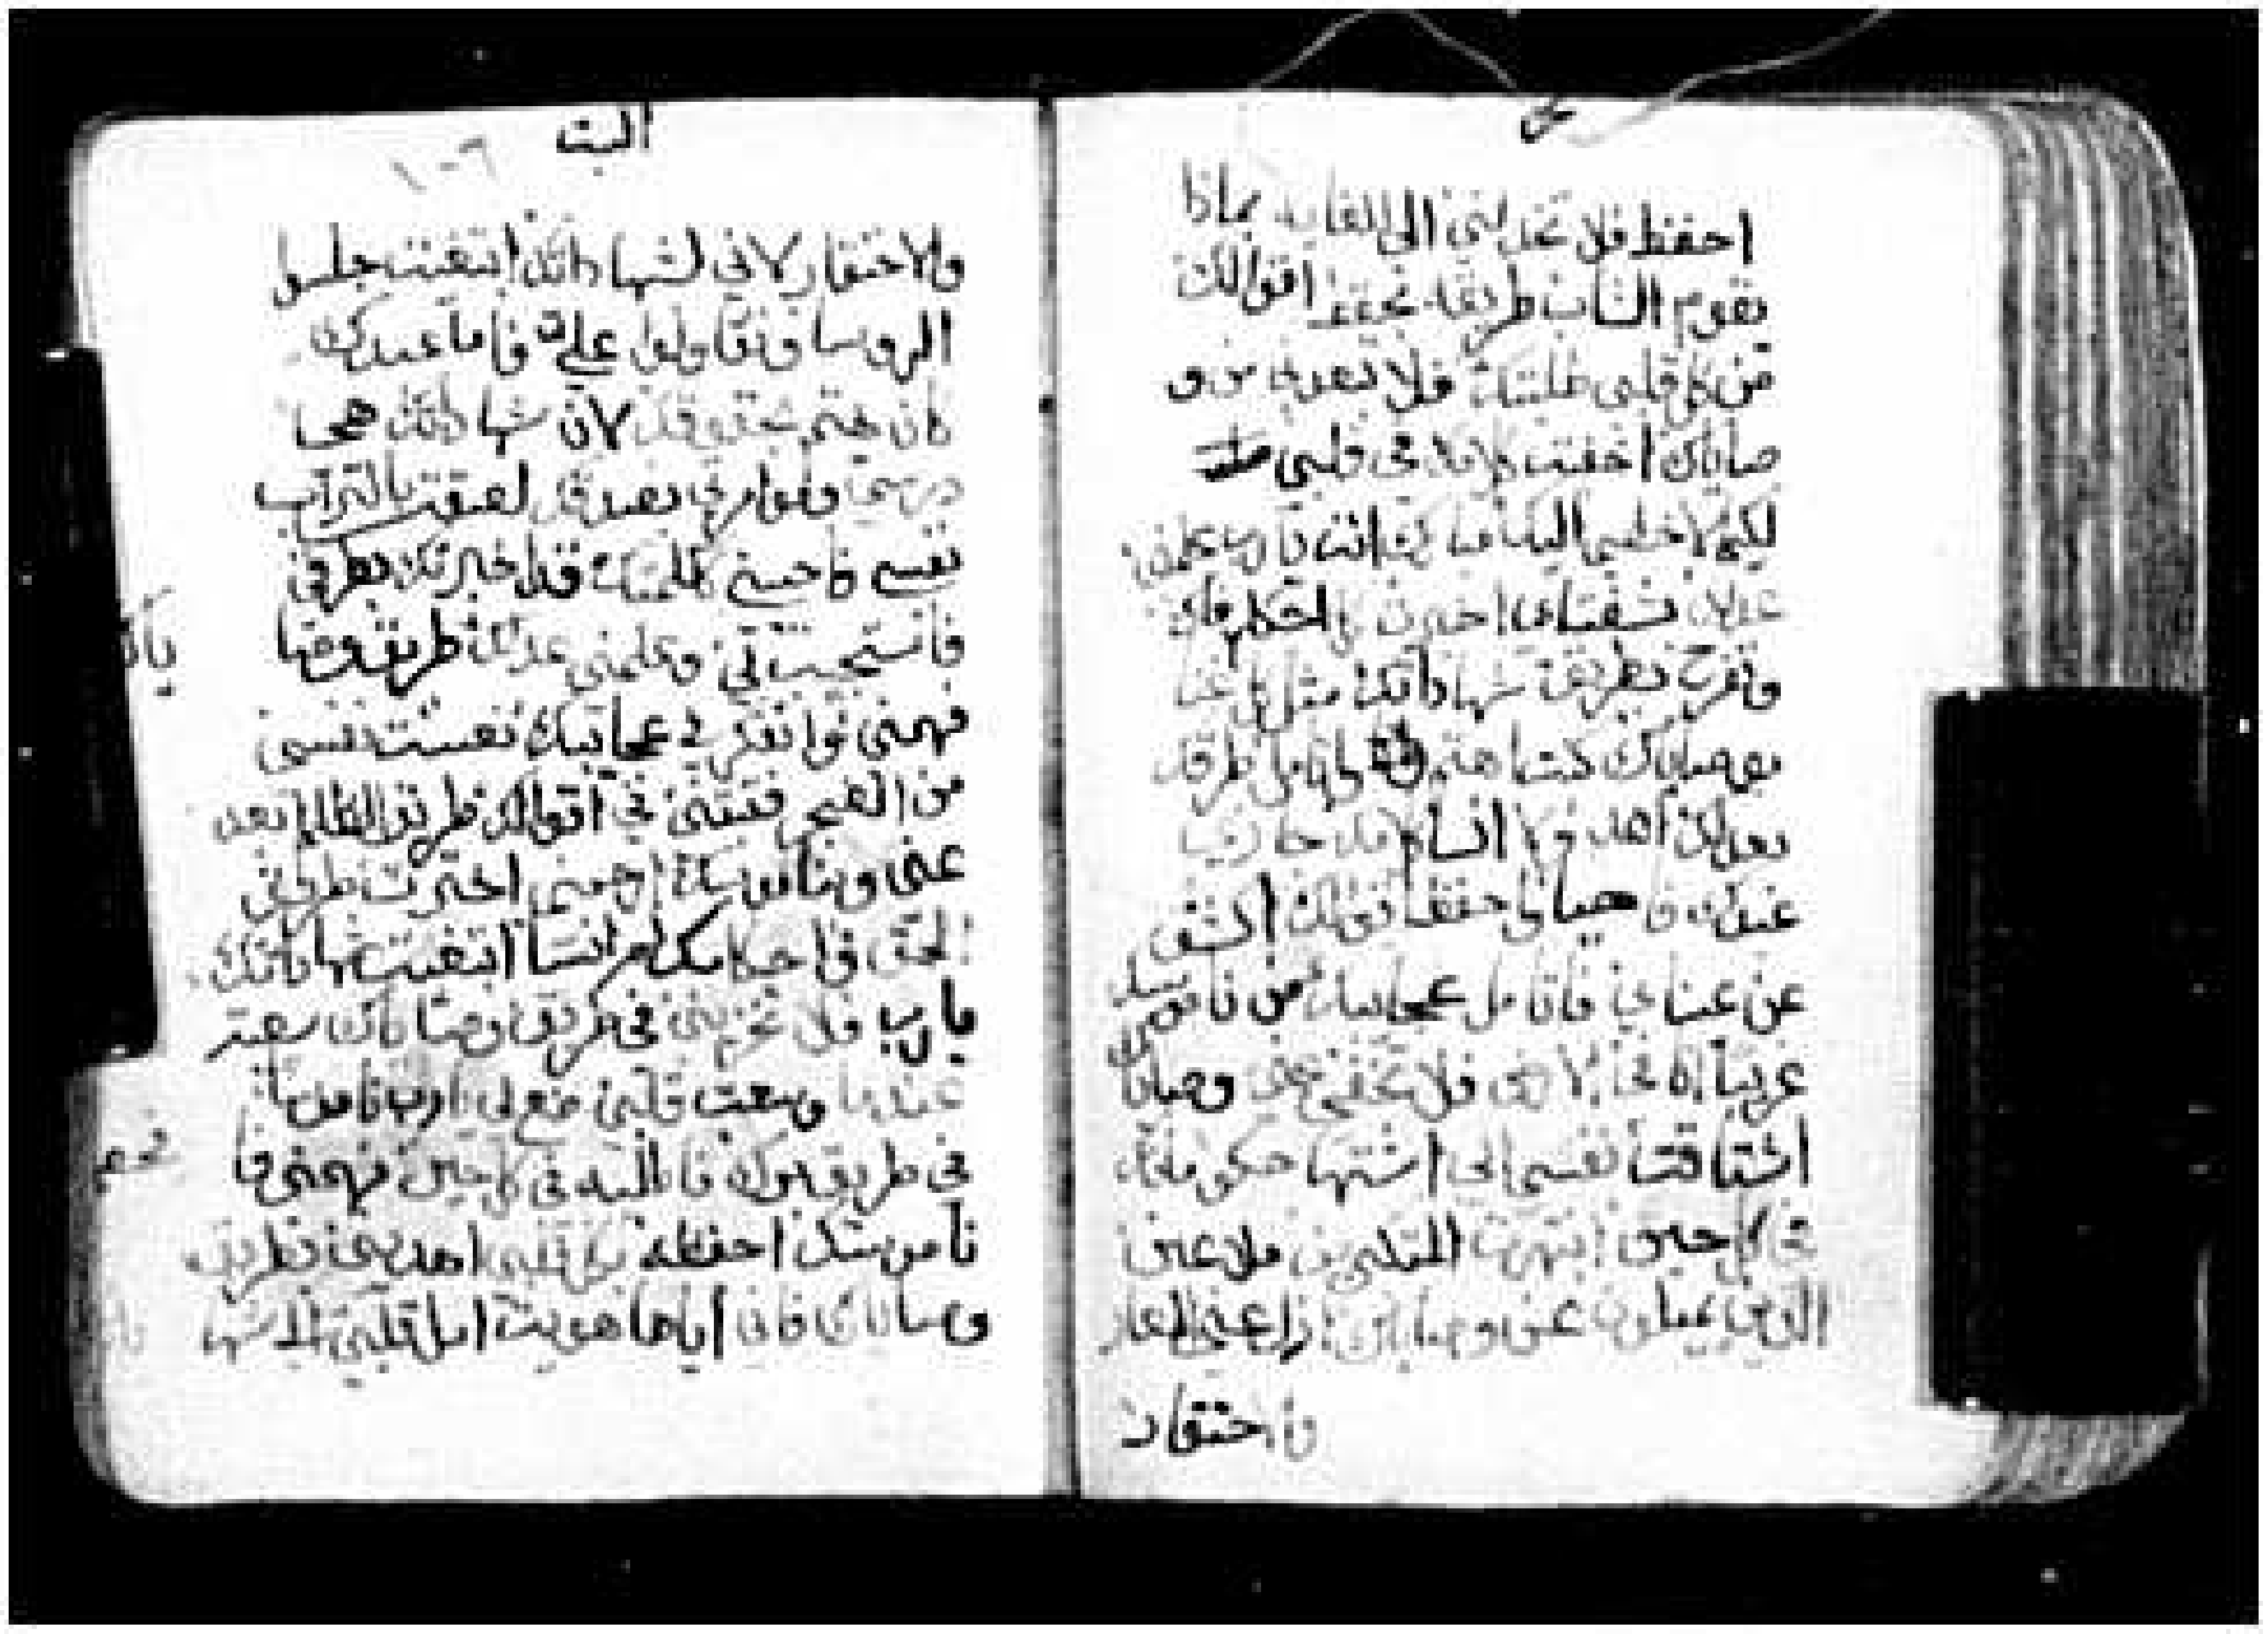 احفظ فلا تخذلني الى الغايه بماذا
يقوم الشاب طريقه بحفظ اقوالك
من كل قلبي طلبتك فلا تبعدني من و
صاياك اخفيت كلامك في قلبي
لكيما لا اخطي اليك مبارك انت يا رب علمني
عدلك بشفتاي اخبرت كل احكام فاك
وتفرح بطريق شهاداتك مثل كل غنا
بوصاياك طرقك
بعدلك انسا كلامك جازي
عبدك فاحيا واحفظ اقوالك اكشف
عن عيناي فاتامل عجايبك من ناموسك
غريباً انا في الارض فلا تخفي عني وصاياك
اشتاقت نفسي الى اشتها حكوماتك
في كل حين انتهرت المتكبرين ملاعين
الذين يميلون عن وصاياك انزع عني العار
والاحتقار
البت
١٠٦
والاحتقار لاني لشهاداتك ابتغيت جلسوا
الروسا وتقاولوا علي واما عبدك
كان يهتم بحقوقك لان شهاداتك هي
درسي وموامرتي بعدلك لصقت بالتراب
نفسي فاحييني كلمتك قد اخبرتك بطرقي
فاستجبت لي وعلمني عدلك طريق وصا
فهمني فاتفكر في عجايبك نعست نفسي
من الضجر فثبتني في اقوالك طريق الظلم ابعد
عني وبناموسك ارحمني اخترت طريق
الحق واحكامك لم انسا ابتغيت شهاداتك
يا رب فلا تخزيني في طريق وصاياك سعيت
عندما وسعت قلبي ضع لي يا رب ناموسا
في طريق برك فاطلبه في كل حين فهمني فا
ناموسك احفظه بكل قلبي اهديني بطريق
وصاياك فاني اياها هويت امل قلبي الى شها